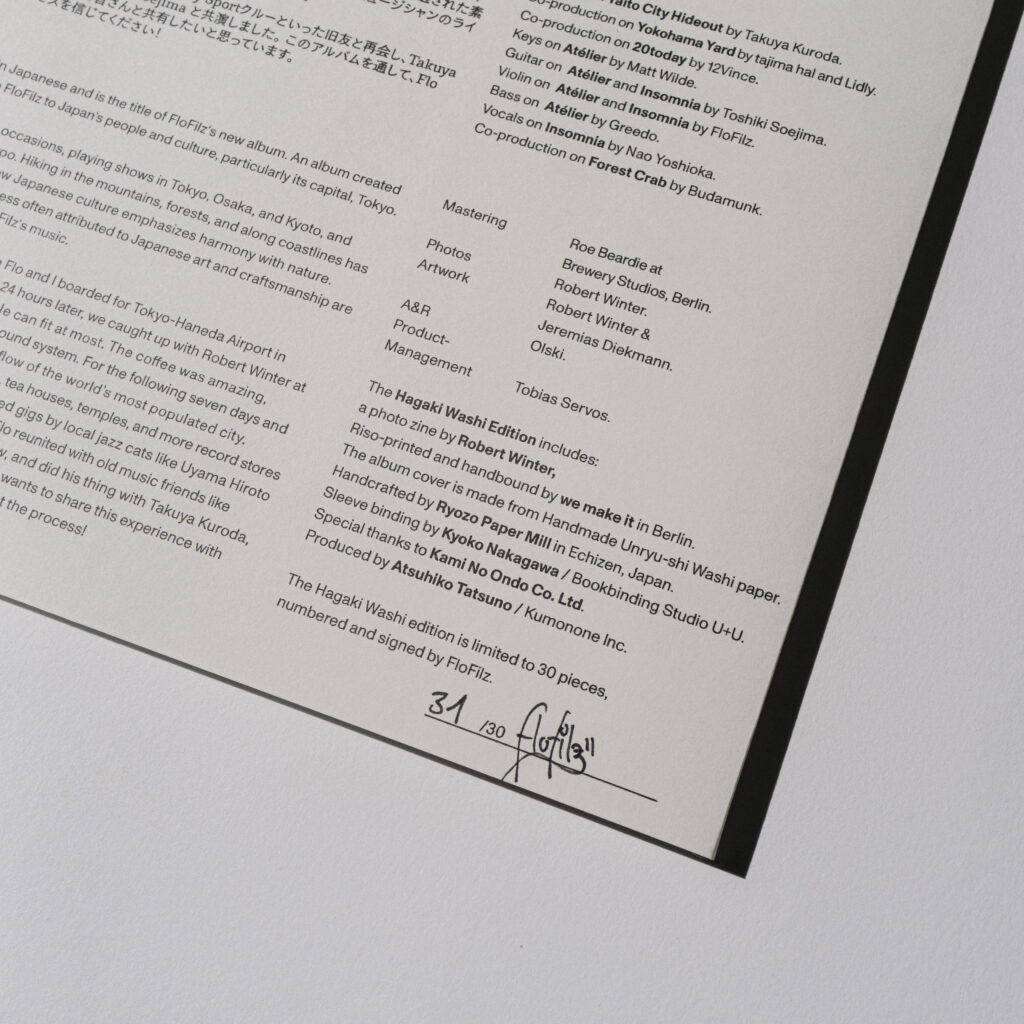 Sportクルーといった旧友と再会し、Takuya
Soejima と共演しました。このアルバムを通して、Flo
皆さんと共有したいと思っています。
スを信じてください！
in Japanese and is the title of FloFilz's new album. An album created
FloFilz to Japan's people and culture, particularly its capital, Tokyo.
occasions, playing shows in Tokyo, Osaka, and Kyoto, and
too. Hiking in the mountains, forests, and along coastlines has
Japanese culture emphasizes harmony with nature.
often attributed to Japanese art and craftsmanship are
music.
Flo and I boarded for Tokyo-Haneda Airport in
24 hours later, we caught up with Robert Winter at
can fit at most. The coffee was amazing,
sound system. For the following seven days and
flow of the world's most populated city.
tea houses, temples, and more record stores
gigs by local jazz cats like Uyama Hiroto
Flo reunited with old music friends like
and did his thing with Takuya Kuroda,
wants to share this experience with
the process!
Taito City Hideout by Takuya Kuroda.
Co-production on Yokohama Yard by tajima hal and Lidly.
Co-production on 20today by 12Vince.
Keys on Atélier by Matt Wilde.
Guitar on Atélier and Insomnia by Toshiki Soejima.
Violin on Atélier and Insomnia by FloFilz.
Bass on Atélier by Greedo.
Vocals on Insomnia by Nao Yoshioka.
Co-production on Forest Crab by Budamunk.
Mastering
Photos
Artwork
A&R
Product-
Management
Roe Beardie at
Brewery Studios, Berlin.
Robert Winter.
Robert Winter &
Jeremias Diekmann.
Olski.
Tobias Servos.
The Hagaki Washi Edition includes:
a photo zine by Robert Winter,
Riso-printed and handbound by we make it in Berlin.
The album cover is made from Handmade Unryu-shi Washi paper.
Handcrafted by Ryozo Paper Mill in Echizen, Japan.
Sleeve binding by Kyoko Nakagawa / Bookbinding Studio U+U.
Special thanks to Kami No Ondo Co. Ltd.
Produced by Atsuhiko Tatsuno / Kumonone Inc.
The Hagaki Washi edition is limited to 30 pieces,
numbered and signed by FloFilz.
31 /30 flofilz